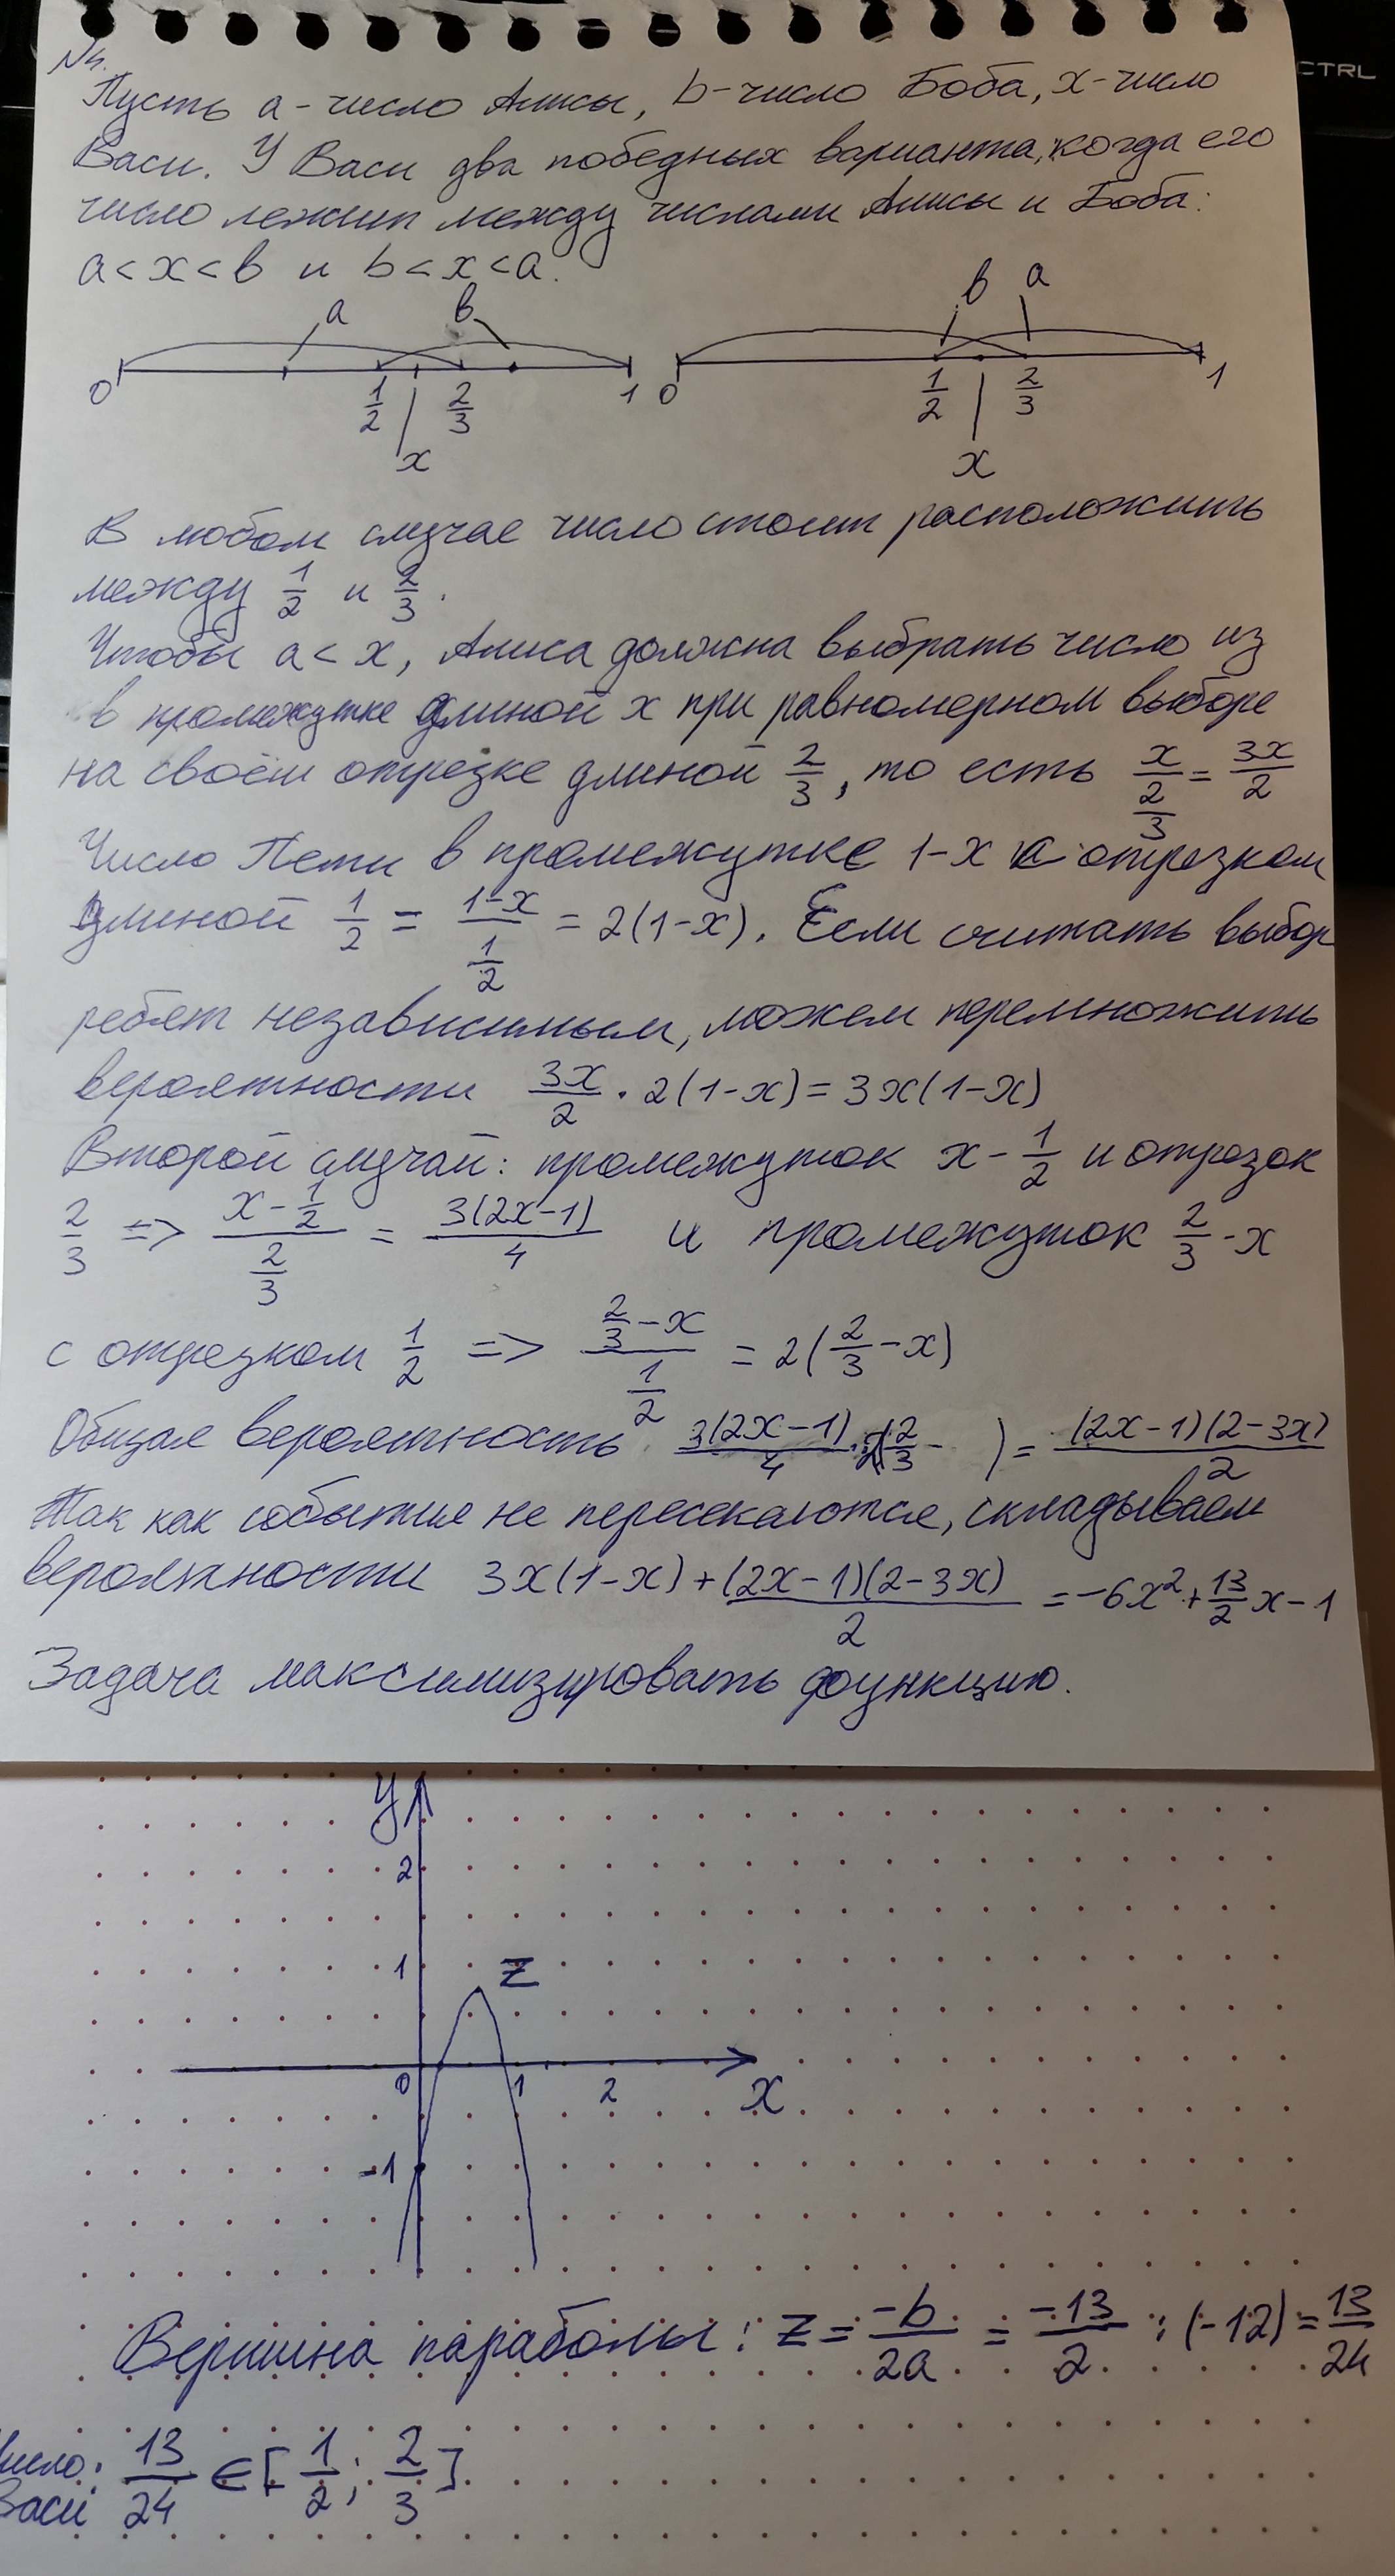 CTRL
№4.
Пусть a - число Алисы, b - число Боба, x - число
Васи. У Васи два победных варианта, когда его
число лежит между числами Алисы и Боба:
a < x < b и b < x < a.
a b b a
0 1/2 2/3 1 0 1/2 2/3 1
x x
В любом случае число стоит расположить
между 1/2 и 2/3.
Чтобы a < x, Алиса должна выбрать число из
в промежутке длиной x при равномерном выборе
на своём отрезке длиной 2/3, то есть x/(2/3) = 3x/2
Число Пети в промежутке 1-x с отрезком
длиной 1/2 = (1-x)/(1/2) = 2(1-x). Если считать выбор
ребят независимым, можем перемножить
вероятности 3x/2 · 2(1-x) = 3x(1-x)
Второй случай: промежуток x - 1/2 и отрезок
2/3 => (x - 1/2)/(2/3) = 3(2x-1)/4 и промежуток 2/3 - x
с отрезком 1/2 => (2/3 - x)/(1/2) = 2(2/3 - x)
Общая вероятность 3(2x-1)/4 · 2(2/3 - ) = (2x-1)(2-3x)/2
Так как события не пересекаются, складываем
вероятности 3x(1-x) + (2x-1)(2-3x)/2 = -6x² + 13/2 x - 1
Задача максимизировать функцию.
y
2
1 z
0 1 2 x
-1
Вершина параболы: z = -b/2a = -13/2 : (-12) = 13/24
Число: 13/24 ∈ [1/2; 2/3]
Васи